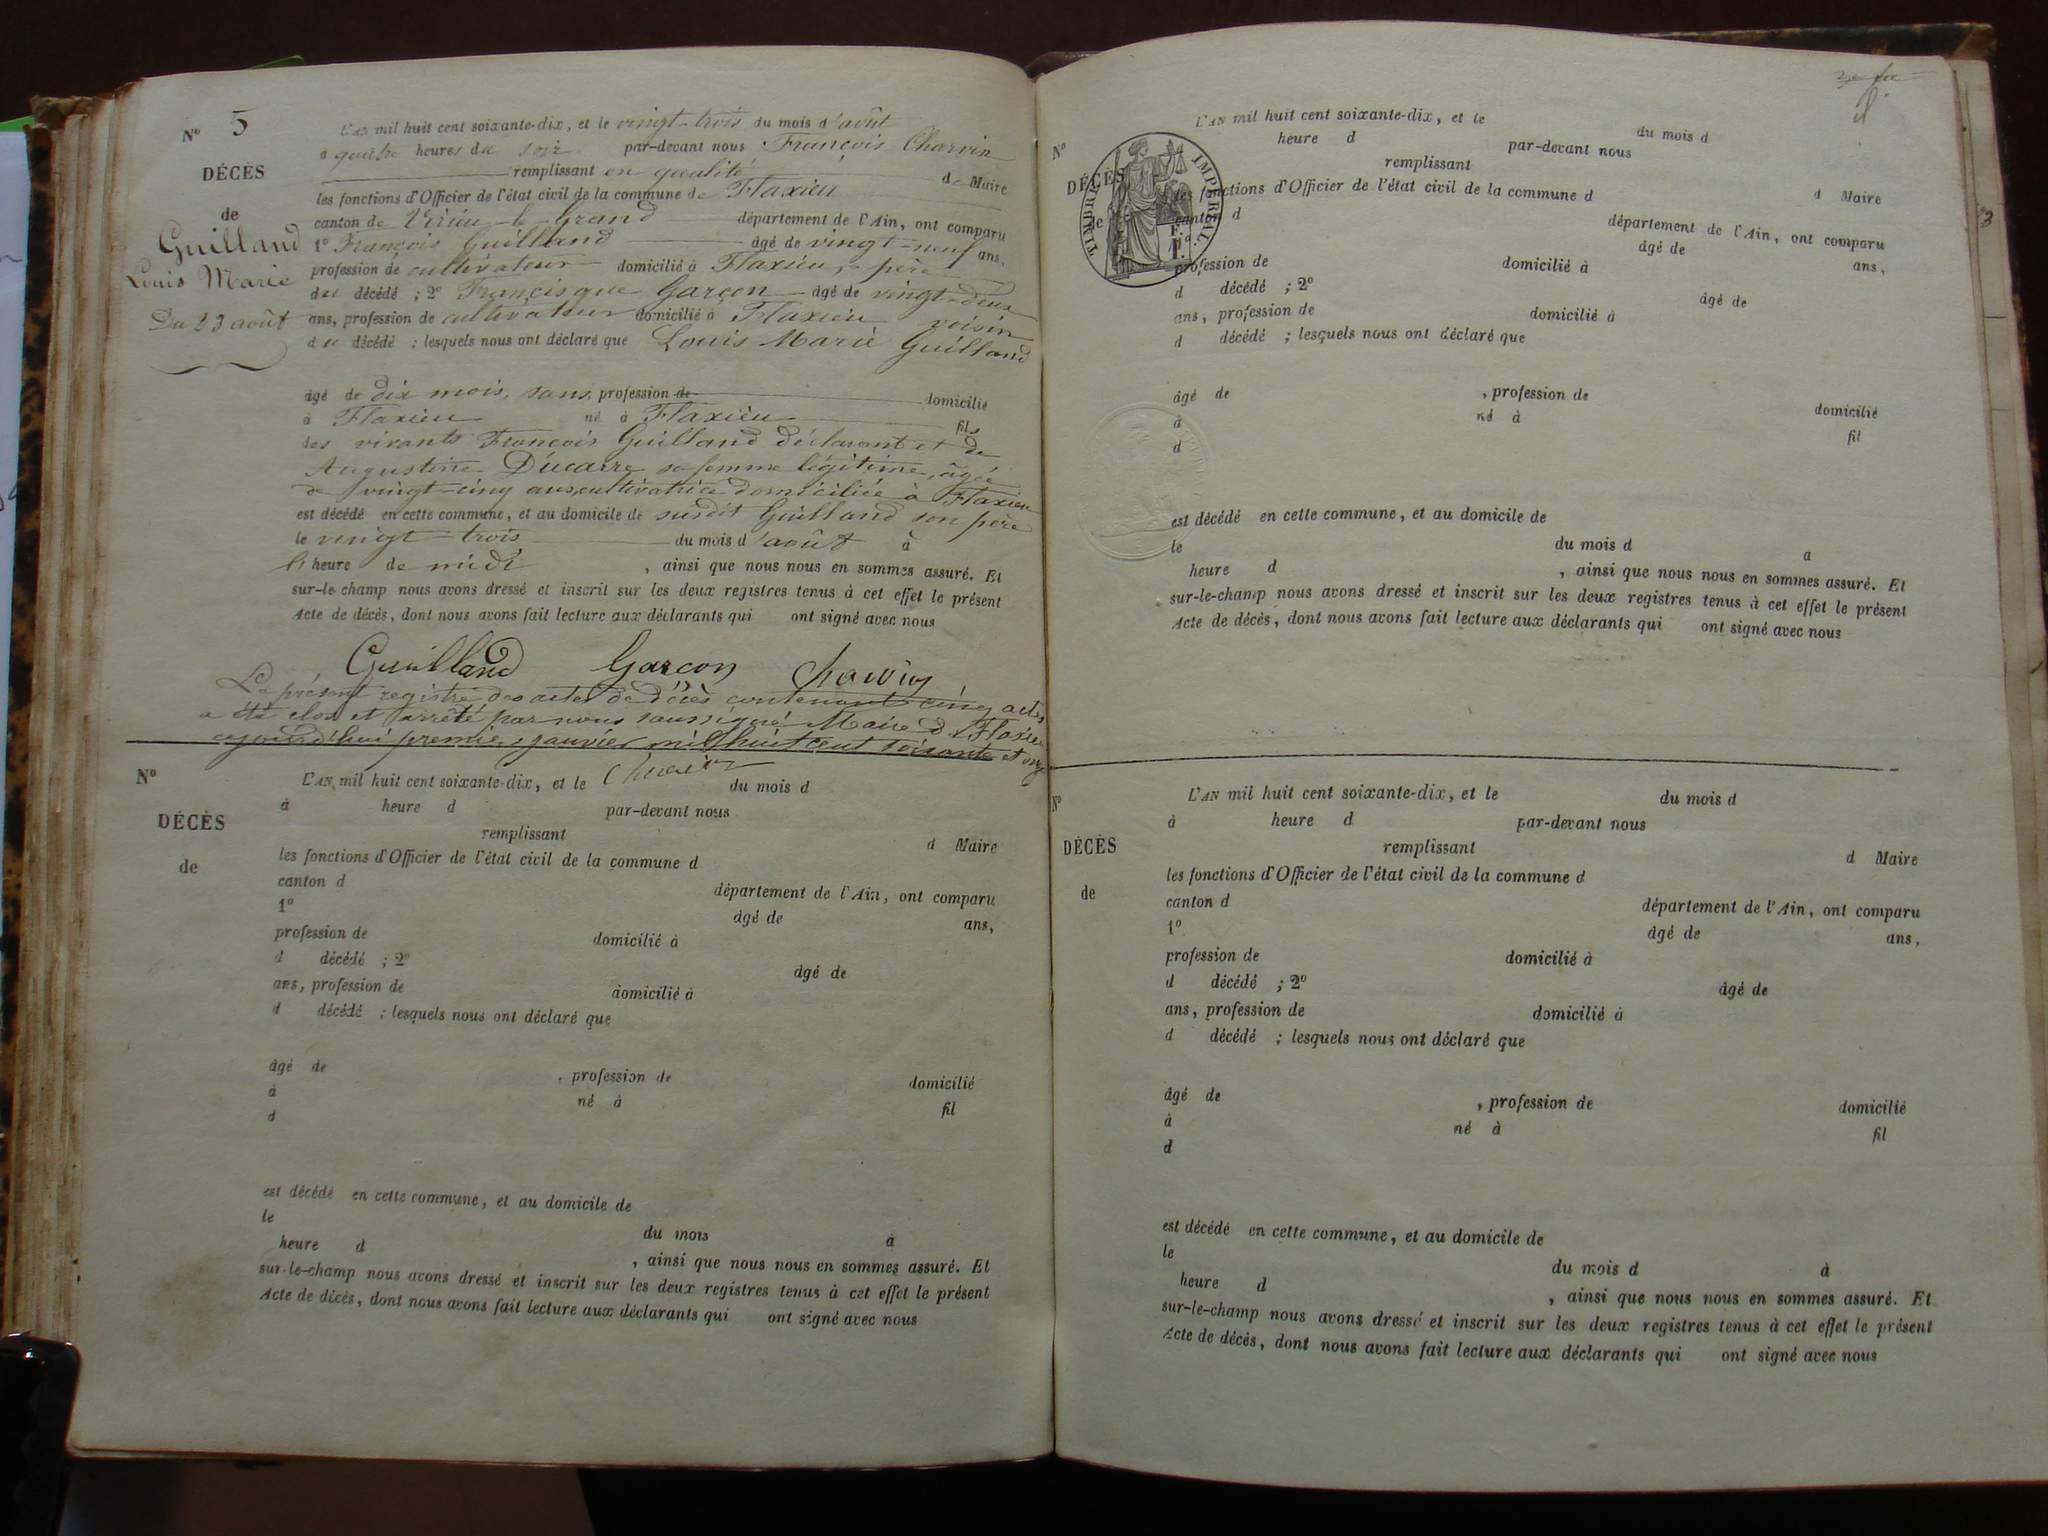 N° 5
DÉCÈS
de
Guilland
Louis Marie
Du 23 août
L'AN mil huit cent soixante-dix, et le vingt-trois du mois d'août
à quatre heures du soir par-devant nous François Charvin
remplissant en qualité de Maire
les fonctions d'Officier de l'état civil de la commune de Flaxieu
canton de Virieu-le-Grand département de l'Ain, ont comparu
1° François Guilland âgé de vingt-neuf ans,
profession de cultivateur domicilié à Flaxieu, père
du décédé ; 2° Francisque Garçon âgé de vingt-deux
ans, profession de cultivateur domicilié à Flaxieu voisin
du décédé ; lesquels nous ont déclaré que Louis Marie Guilland
âgé de dix mois, sans profession de domicilié
à Flaxieu né à Flaxieu fils
des vivants François Guilland déclarant et de
Augustine Ducarre sa femme légitime, âgée
de vingt-cinq ans, cultivatrice domiciliée à Flaxieu
est décédé en cette commune, et au domicile de susdit Guilland son père
le vingt-trois du mois d'août à
l'heure de midi , ainsi que nous nous en sommes assuré. Et
sur-le-champ nous avons dressé et inscrit sur les deux registres tenus à cet effet le présent
Acte de décès, dont nous avons fait lecture aux déclarants qui ont signé avec nous
Guilland Garçon Charvin
Le présent registre des actes de décès contenant cinq actes
a été clos et arrêté par nous soussigné Maire de Flaxieu
aujourd'hui premier janvier mil huit cent soixante et onze
Charvin
N°
DÉCÈS
de
L'AN mil huit cent soixante-dix, et le du mois d
à heure d par-devant nous
remplissant d Maire
les fonctions d'Officier de l'état civil de la commune d
canton d département de l'Ain, ont comparu
1° âgé de ans,
profession de domicilié à
d décédé ; 2° âgé de
ans, profession de domicilié à
d décédé ; lesquels nous ont déclaré que
âgé de , profession de domicilié
à né à fil
d
est décédé en cette commune, et au domicile de
le du mois à
heure d , ainsi que nous nous en sommes assuré. Et
sur-le-champ nous avons dressé et inscrit sur les deux registres tenus à cet effet le présent
Acte de décès, dont nous avons fait lecture aux déclarants qui ont signé avec nous
N°
DÉCÈS
de
TIMBRE IMPERIAL
1 F.
L'AN mil huit cent soixante-dix, et le du mois d
heure d par-devant nous
remplissant d Maire
les fonctions d'Officier de l'état civil de la commune d
canton d département de l'Ain, ont comparu
âgé de ans,
profession de domicilié à
d décédé ; 2° âgé de
ans, profession de domicilié à
d décédé ; lesquels nous ont déclaré que
âgé de , profession de domicilié
à né à fil
d
est décédé en cette commune, et au domicile de
le du mois d a
heure d , ainsi que nous nous en sommes assuré. Et
sur-le-champ nous avons dressé et inscrit sur les deux registres tenus à cet effet le présent
Acte de décès, dont nous avons fait lecture aux déclarants qui ont signé avec nous
N°
DÉCÈS
de
L'AN mil huit cent soixante-dix, et le du mois d
à heure d par-devant nous
remplissant d Maire
les fonctions d'Officier de l'état civil de la commune d
canton d département de l'Ain, ont comparu
1° âgé de ans,
profession de domicilié à
d décédé ; 2° âgé de
ans, profession de domicilié à
d décédé ; lesquels nous ont déclaré que
âgé de , profession de domicilié
à né à fil
d
est décédé en cette commune, et au domicile de
le du mois d à
heure d , ainsi que nous nous en sommes assuré. Et
sur-le-champ nous avons dressé et inscrit sur les deux registres tenus à cet effet le présent
Acte de décès, dont nous avons fait lecture aux déclarants qui ont signé avec nous